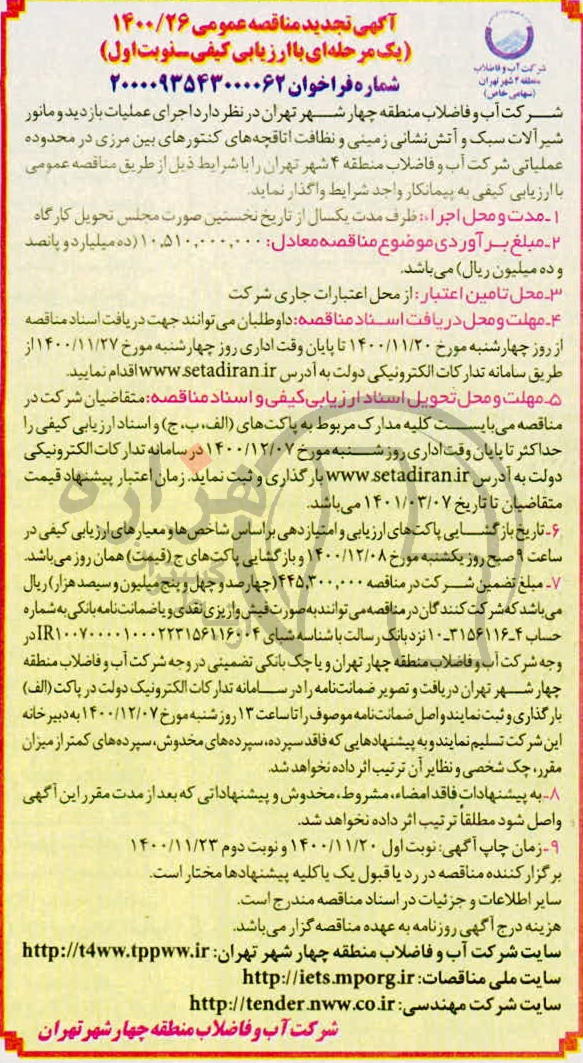 آگهی تجدید مناقصه عمومی ۱۴۰۰/۲۶
(یک مرحله‌ای با ارزیابی کیفی ـ نوبت اول)
شماره فراخوان ۲۰۰۰۰۹۳۵۴۳۰۰۰۰۶۲
شرکت آب و فاضلاب
منطقه ۴ شهر تهران
(سهامی خاص)
شرکت آب و فاضلاب منطقه چهار شهر تهران در نظر دارد اجرای عملیات بازدید و مانور
شیرآلات سبک و آتش‌نشانی زمینی و نظافت اتاقچه‌های کنتورهای بین مرزی در محدوده
عملیاتی شرکت آب و فاضلاب منطقه ۴ شهر تهران را با شرایط ذیل از طریق مناقصه عمومی
با ارزیابی کیفی به پیمانکار واجد شرایط واگذار نماید.
۱ـ مدت و محل اجراء: ظرف مدت یکسال از تاریخ نخستین صورت مجلس تحویل کارگاه
۲ـ مبلغ برآوردی موضوع مناقصه معادل: ۱۰,۵۱۰,۰۰۰,۰۰۰ (ده میلیارد و پانصد
و ده میلیون ریال) می‌باشد.
۳ـ محل تامین اعتبار: از محل اعتبارات جاری شرکت
۴ـ مهلت و محل دریافت اسناد مناقصه: داوطلبان می‌توانند جهت دریافت اسناد مناقصه
از روز چهارشنبه مورخ ۱۴۰۰/۱۱/۲۰ تا پایان وقت اداری روز چهارشنبه مورخ ۱۴۰۰/۱۱/۲۷ از
طریق سامانه تدارکات الکترونیکی دولت به آدرس www.setadiran.ir اقدام نمایید.
۵ـ مهلت و محل تحویل اسناد ارزیابی کیفی و اسناد مناقصه: متقاضیان شرکت در
مناقصه می‌بایست کلیه مدارک مربوط به پاکت‌های (الف، ب، ج) و اسناد ارزیابی کیفی را
حداکثر تا پایان وقت اداری روز شنبه مورخ ۱۴۰۰/۱۲/۰۷ در سامانه تدارکات الکترونیکی
دولت به آدرس www.setadiran.ir بارگذاری و ثبت نماید. زمان اعتبار پیشنهاد قیمت
متقاضیان تا تاریخ ۱۴۰۱/۰۳/۰۷ می‌باشد.
۶ـ تاریخ بازگشایی پاکت‌های ارزیابی و امتیازدهی براساس شاخص‌ها و معیارهای ارزیابی کیفی در
ساعت ۹ صبح روز یکشنبه مورخ ۱۴۰۰/۱۲/۰۸ و بازگشایی پاکت‌های ج (قیمت) همان روز می‌باشد.
۷ـ مبلغ تضمین شرکت در مناقصه ۴۴۵,۳۰۰,۰۰۰ (چهارصد و چهل و پنج میلیون و سیصد هزار) ریال
می‌باشد که شرکت کنندگان در مناقصه می‌توانند به صورت فیش واریزی نقدی و یا ضمانت نامه بانکی به شماره
حساب ۴ـ۳۱۵۶۱۱۶ـ۱۰ نزد بانک رسالت با شناسه شبای IR۱۰۰۷۰۰۰۰۱۰۰۰۲۲۳۱۵۶۱۱۶۰۰۴ در
وجه شرکت آب و فاضلاب منطقه چهار تهران و یا چک بانکی تضمینی در وجه شرکت آب و فاضلاب منطقه
چهار شهر تهران دریافت و تصویر ضمانت‌نامه را در سامانه تدارکات الکترونیک دولت در پاکت (الف)
بارگذاری و ثبت نمایند و اصل ضمانت‌نامه موصوف را تا ساعت ۱۳ روز شنبه مورخ ۱۴۰۰/۱۲/۰۷ به دبیرخانه
این شرکت تسلیم نمایند و به پیشنهادهایی که فاقد سپرده، سپرده‌های مخدوش، سپرده‌های کمتر از میزان
مقرر، چک شخصی و نظایر آن ترتیب اثر داده نخواهد شد.
۸ـ به پیشنهادات فاقد امضاء، مشروط، مخدوش و پیشنهاداتی که بعد از مدت مقرر این آگهی
واصل شود مطلقاً ترتیب اثر داده نخواهد شد.
۹ـ زمان چاپ آگهی: نوبت اول ۱۴۰۰/۱۱/۲۰ و نوبت دوم ۱۴۰۰/۱۱/۲۳
برگزار کننده مناقصه در رد یا قبول یک یا کلیه پیشنهادها مختار است.
سایر اطلاعات و جزئیات در اسناد مناقصه مندرج است.
هزینه درج آگهی روزنامه به عهده مناقصه گزار می‌باشد.
سایت شرکت آب و فاضلاب منطقه چهار شهر تهران: http://t4ww.tppww.ir
سایت ملی مناقصات: http://iets.mporg.ir
سایت شرکت مهندسی: http://tender.nww.co.ir
شرکت آب و فاضلاب منطقه چهار شهر تهران
هزاره